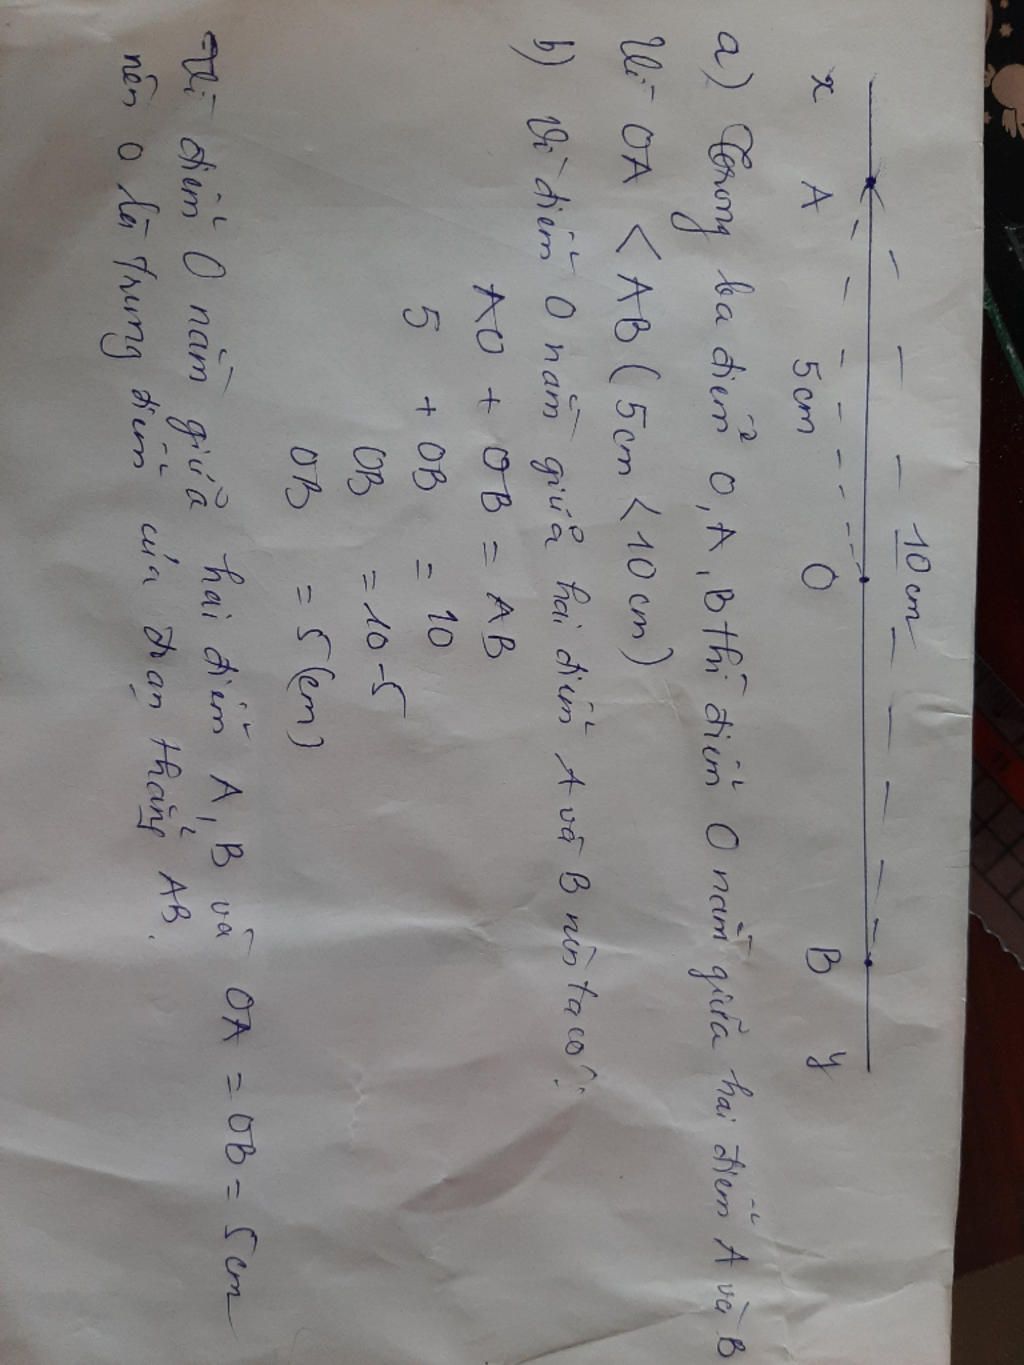 10 cm
x A 5cm O B y
a) Trong ba điểm O, A, B thì điểm O nằm giữa hai điểm A và B
Vì OA < AB ( 5cm < 10 cm )
b) Vì điểm O nằm giữa hai điểm A và B nên ta có :
AO + OB = AB
5 + OB = 10
OB = 10 - 5
OB = 5 (cm)
Vì điểm O nằm giữa hai điểm A, B và OA = OB = 5 cm
nên O là trung điểm của đoạn thẳng AB.